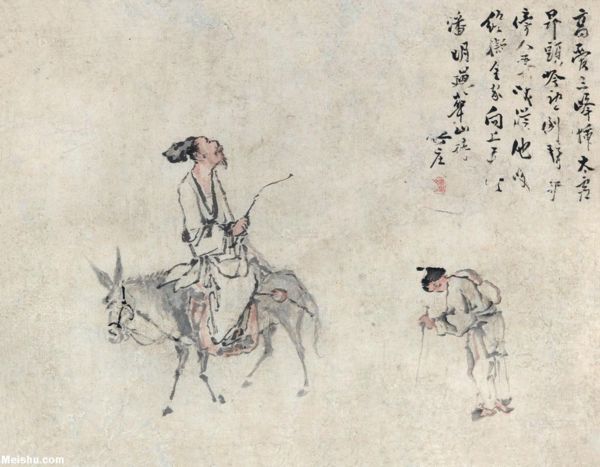 高愛三峰插太虛
昂頭吟望倒騎驢
傍人大咲從他咲
終擬全家向上居
潘閬過華山詩
Meishu.com